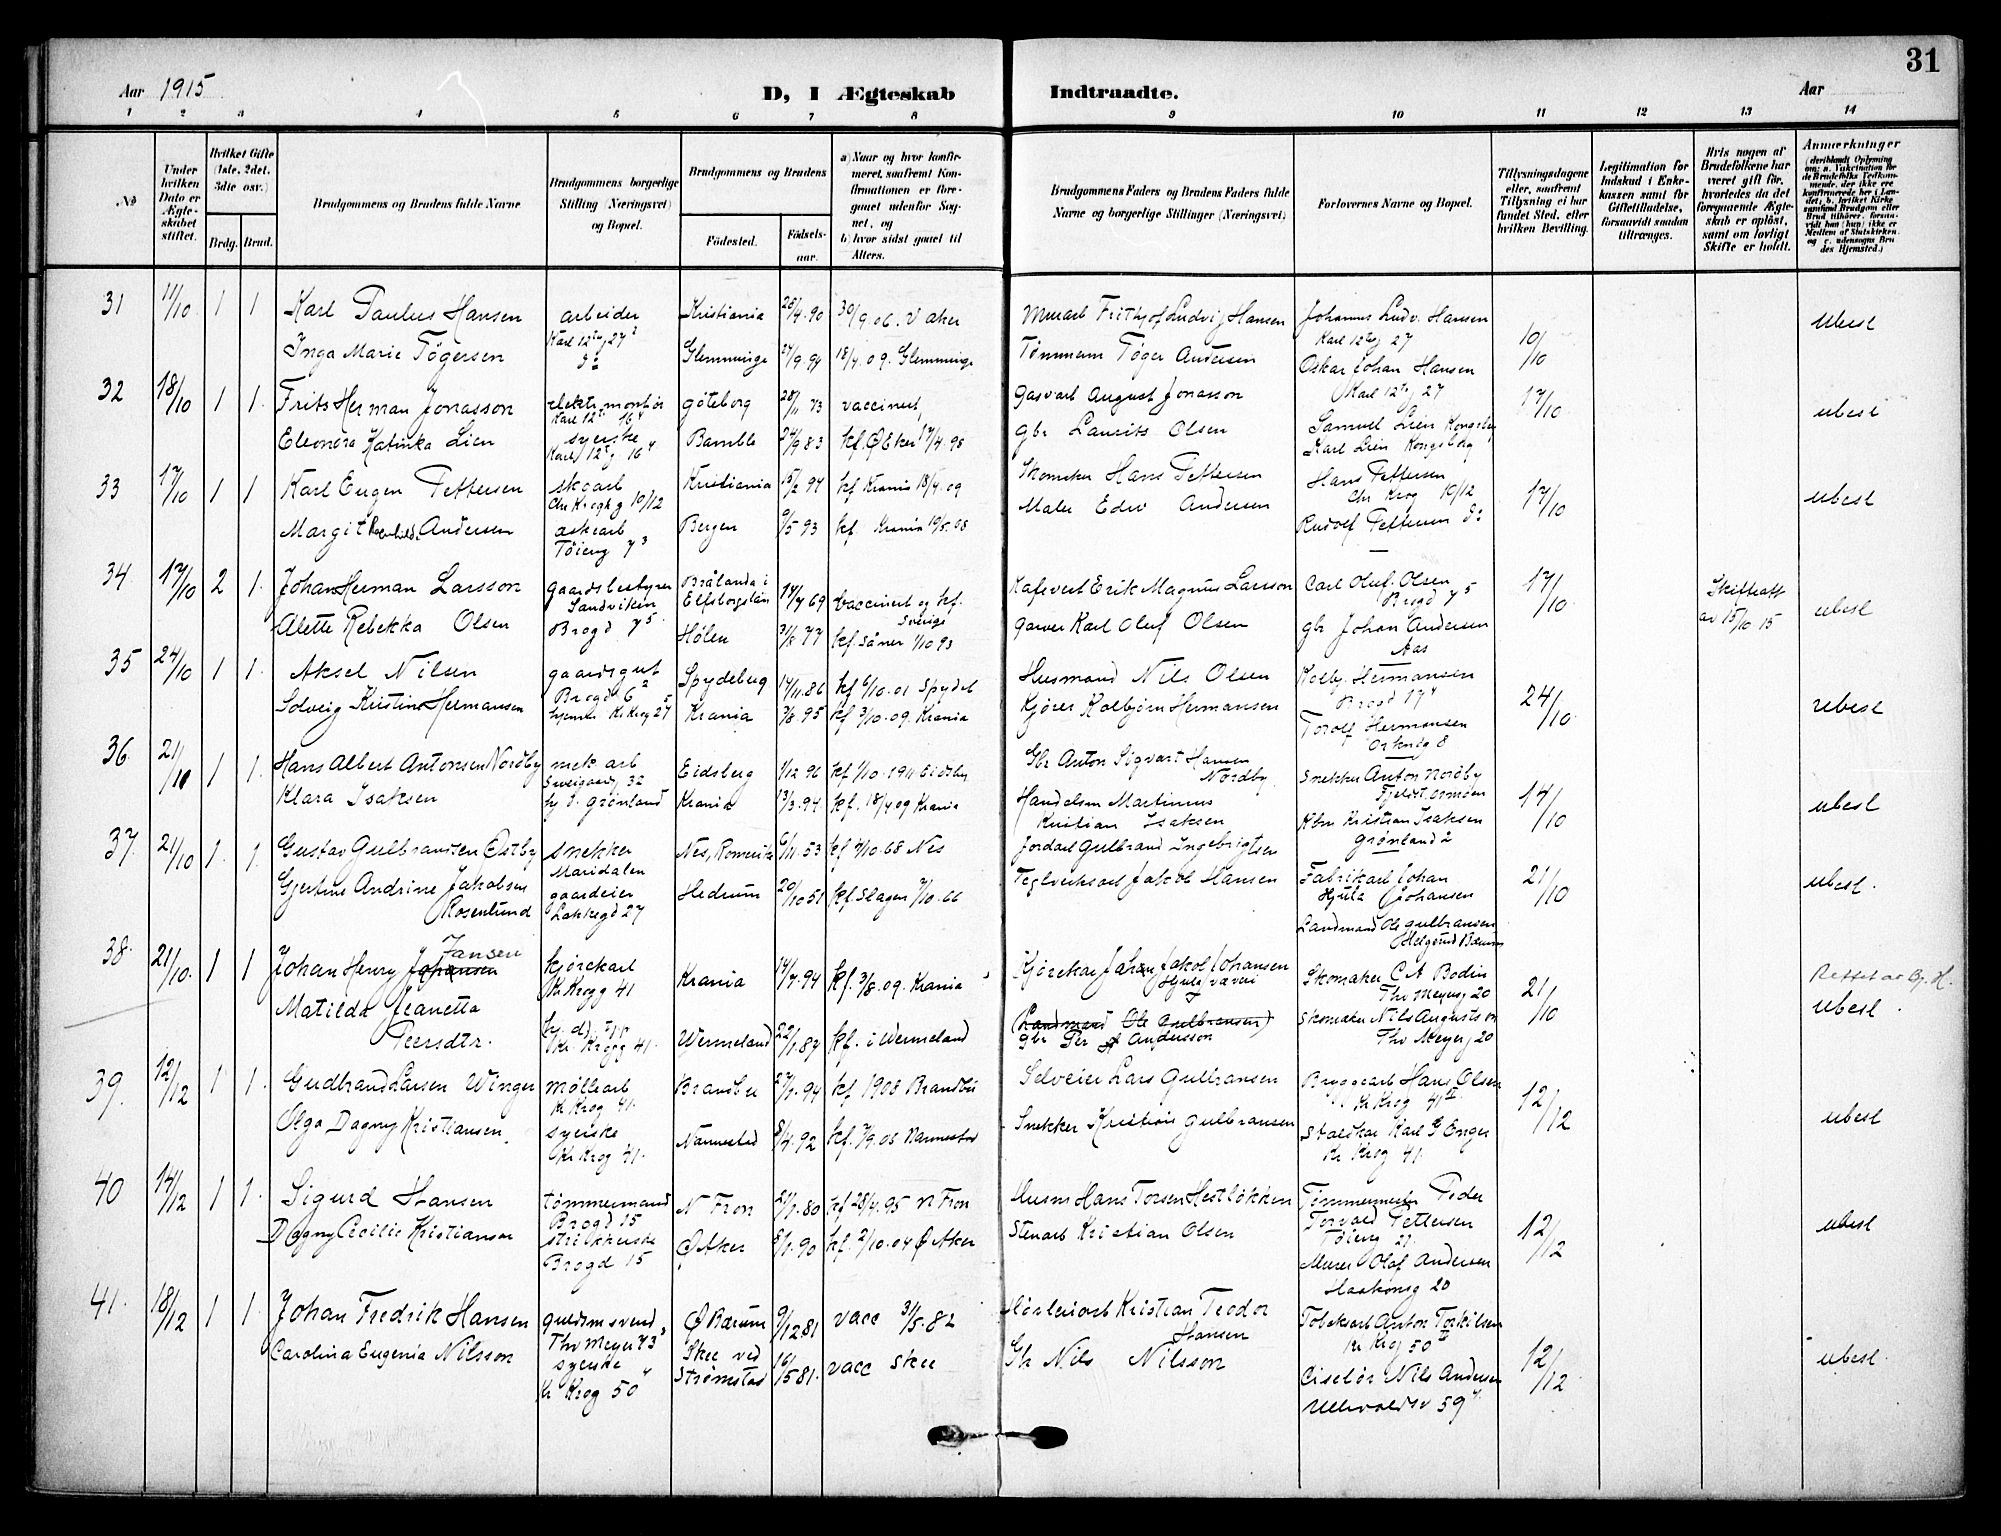 31
Aar 1915
D, I Ægteskab Indtraadte.
Aar
1 2 3 4 5 6 7 8 9 10 11 12 13 14
No
Under hvilken Dato er Ægteskabet stiftet.
Hvilket Gifte (1ste, 2det, 3die osv.)
Brdg. Brud.
Brudgommens og Brudens fulde Navne
Brudgommens borgerlige Stilling (Næringsvei) og Bopæl.
Brudgommens og Brudens
Fødested.
Fødselsaar.
a) Naar og hvor konfirmeret, saafremt Konfirmationen er foregaaet udenfor Sognet, og
b) hvor sidst gaaet til Alters.
Brudgommens Faders og Brudens Faders fulde Navne og borgerlige Stillinger (Næringsvei)
Forlovernes Navne og Bopæl.
Tillysningsdagene eller, saafremt Tillysning ei har fundet Sted, efter hvilken Bevilling.
Legitimation for Indskud i Enkekassen samt for Giftetilladelse, forsaavidt saadan tiltrænges.
Hvis nogen af Brudefolkene har været gift før, hvorledes da det foregaaende Ægteskab er opløst, samt om lovligt Skifte er holdt.
Anmærkninger
31 11/10 1 1 Karl Paulus Hansen arbeider Kristiania 26/4.90 30/9.06. V Aker Murarb Frithjof Ludvig Hansen Johannes Ludv. Hansen 10/10 ubesl
Karl 12tg 27² Karl 12tg 27
Inga Marie Tøgersen do Glemminge 27/9.94 18/4.09. Glemminge Tømmerm Tøger Andersen Oskar Johan Hansen
Karl 12tg 27
32 18/10 1 1 Frits Herman Jonasson elektr. montør Göteborg 28/11 73 vaccinert, Gasarb August Jonasson 17/10 ubesl
Karl 12tg 16⁴ Samuel Lien Kongsbg
Eleonora Katinka Lien syerske Bamble 24/9 83 kf. Ø Eker 17/4.98 gbr Laurits Olsen Karl Lien Kongsberg
Karl 12tg 16⁴
33 17/10 1 1 Karl Eugen Pettersen skoarb Kristiania 15/2 94 kf Krania 18/4.09 Skomaker Hans Pettersen Hans Pettersen 17/10 ubesl
Chr Kroghg 10/12 Chr Krog 10/12
Margit Ragnhild Andersen æskearb Bergen 9/5 93 kf. Krania 10/5.08 Maler Edv Andersen Rudolf Pettersen do
Tøieng 7³
34 17/10 2 1 Johan Herman Larsson gaardsbestyrer Brålanda i Elfsborgslän 14/7 69 vaccinert og kf. Sverige Erik Magnus Larsson Carl Oluf Olsen 17/10 Skifteatt av 15/10 15 ubesl
Sandviken Brogd 7⁵
Alette Rebekka Olsen Brogd 7⁵ Hølen 3/8 77 kf. Såner 1/10 93 Garver Karl Oluf Olsen gbr Johan Andersen
Aas
35 24/10 1 1 Aksel Nilsen gaardsgut Spydeberg 14/11.86 kf 6/10.01 Spydeb Husmand Nils Olsen Kolbj. Hermansen 24/10 ubesl
Brogd 6² Brogd 17⁴
Solveig Kristine Hermansen Kr Krog 27⁵ Krania 7/8 95 kf 3/10.09. Krania Kjører Kolbjørn Hermansen Torolf Hermansen
Orkneg 8
36 21/10 1 1 Hans Albert Antonsen Nordby mek arb Eidsberg 1/12 96 kf 1/10.1911 Eidsbg Gbr Anton Sigvart Hansen Nordby Snekker Anton Nordby 14/10 ubesl
Sweigaardg 32
Klara Isaksen Grønland Krania 13/3.94. kf. 18/4 09 Krania Handelsm Martinius Kristian Isaksen Kbm Kristian Isaksen
Grønland 2
37 21/10 1 1 Gustav Gulbrandsen Østby snekker Nes, Romerike 6/11.53 kf 4/10.68 Nes Jordarb Gulbrand Ingebrigtsen Fabrikarb Johan Johansen 21/10 ubesl.
Maridalen Hjula
Gjertine Andrine Jakobsen Rosenlund gaardeier Hedrum 20/10 51 kf. Slagen 7/10.66 Teglverksarb Jakob Hansen Landmand Ole Gulbransen
Lakkegd 27 Helgerud Bærum
38 21/10 1 1 Johan Henry Johansen Jansen kjørekarl Krania 14/7.94 kf. 3/8.09. Krania Kjørekar Johan Jakob Johansen Skomaker C A Bodin 21/10 Rettet av Bj. H.
Kr Krogg 41 Hjula væveri Thv Meyersg 20
Matilda Jeanetta Persdtr. Kr Krogg 41. Wermeland 22/1.87 kf. i Wermeland (Landmand Ole Gulbransen) Skomaker Nils Augustson ubesl
gbr Per A Andersson Thv Meyerg 20
39. 12/12 1 1 Gudbrand Larsen Winger møllearb Brandbu 27/7.94 kf 1908 Brandbu Selveier Lars Gulbransen Bryggearb Hans Olsen 12/12 ubesl
Kr Krog 41. Kr Krog 41 II
Olga Dagny Kristiansen. syerske Nannestad 8/4.92 kf. 7/9.06 Nannestad Snekker Kristian Gulbransen Staldkar Karl G Enger
Kr Krog 41. Kr Krog 41.
40 14/12 1 1 Sigurd Hansen tømmermand N Fron 5/1.80 kf 28/4.95 N Fron Husm Hans Torsen Hestløkken Tømmermester Peder Torvald Pettersen 12/12 ubesl
Brogd 15 Tøieng 27.
Dagny Cecilie Kristiansen strikkerske Ø Aker 5/1.90 kf. 2/10.04 Ø Aker Stenarb Kristian Olsen Murer Olaf Andersen
Brogd 15 Haakonsg 20
41. 18/12 1 1 Johan Fredrik Hansen guldsmsvend Ø Bærum 9/12 81 vacc 3/5.82 Høvleriarb Kristian Teodor Hansen Tobaksarb Anton Torkilsen 12/12 ubesl.
Thv Meyer 73³ Kr Krog 50 II
Carolina Eugenia Nilsson syerske Skee ved Strømstad 16/5 81. vacc Skee Gbr Nils Nilsson Ciselør Nils Andersen
Kr Krog 50⁴ Ullevoldsv 59⁴